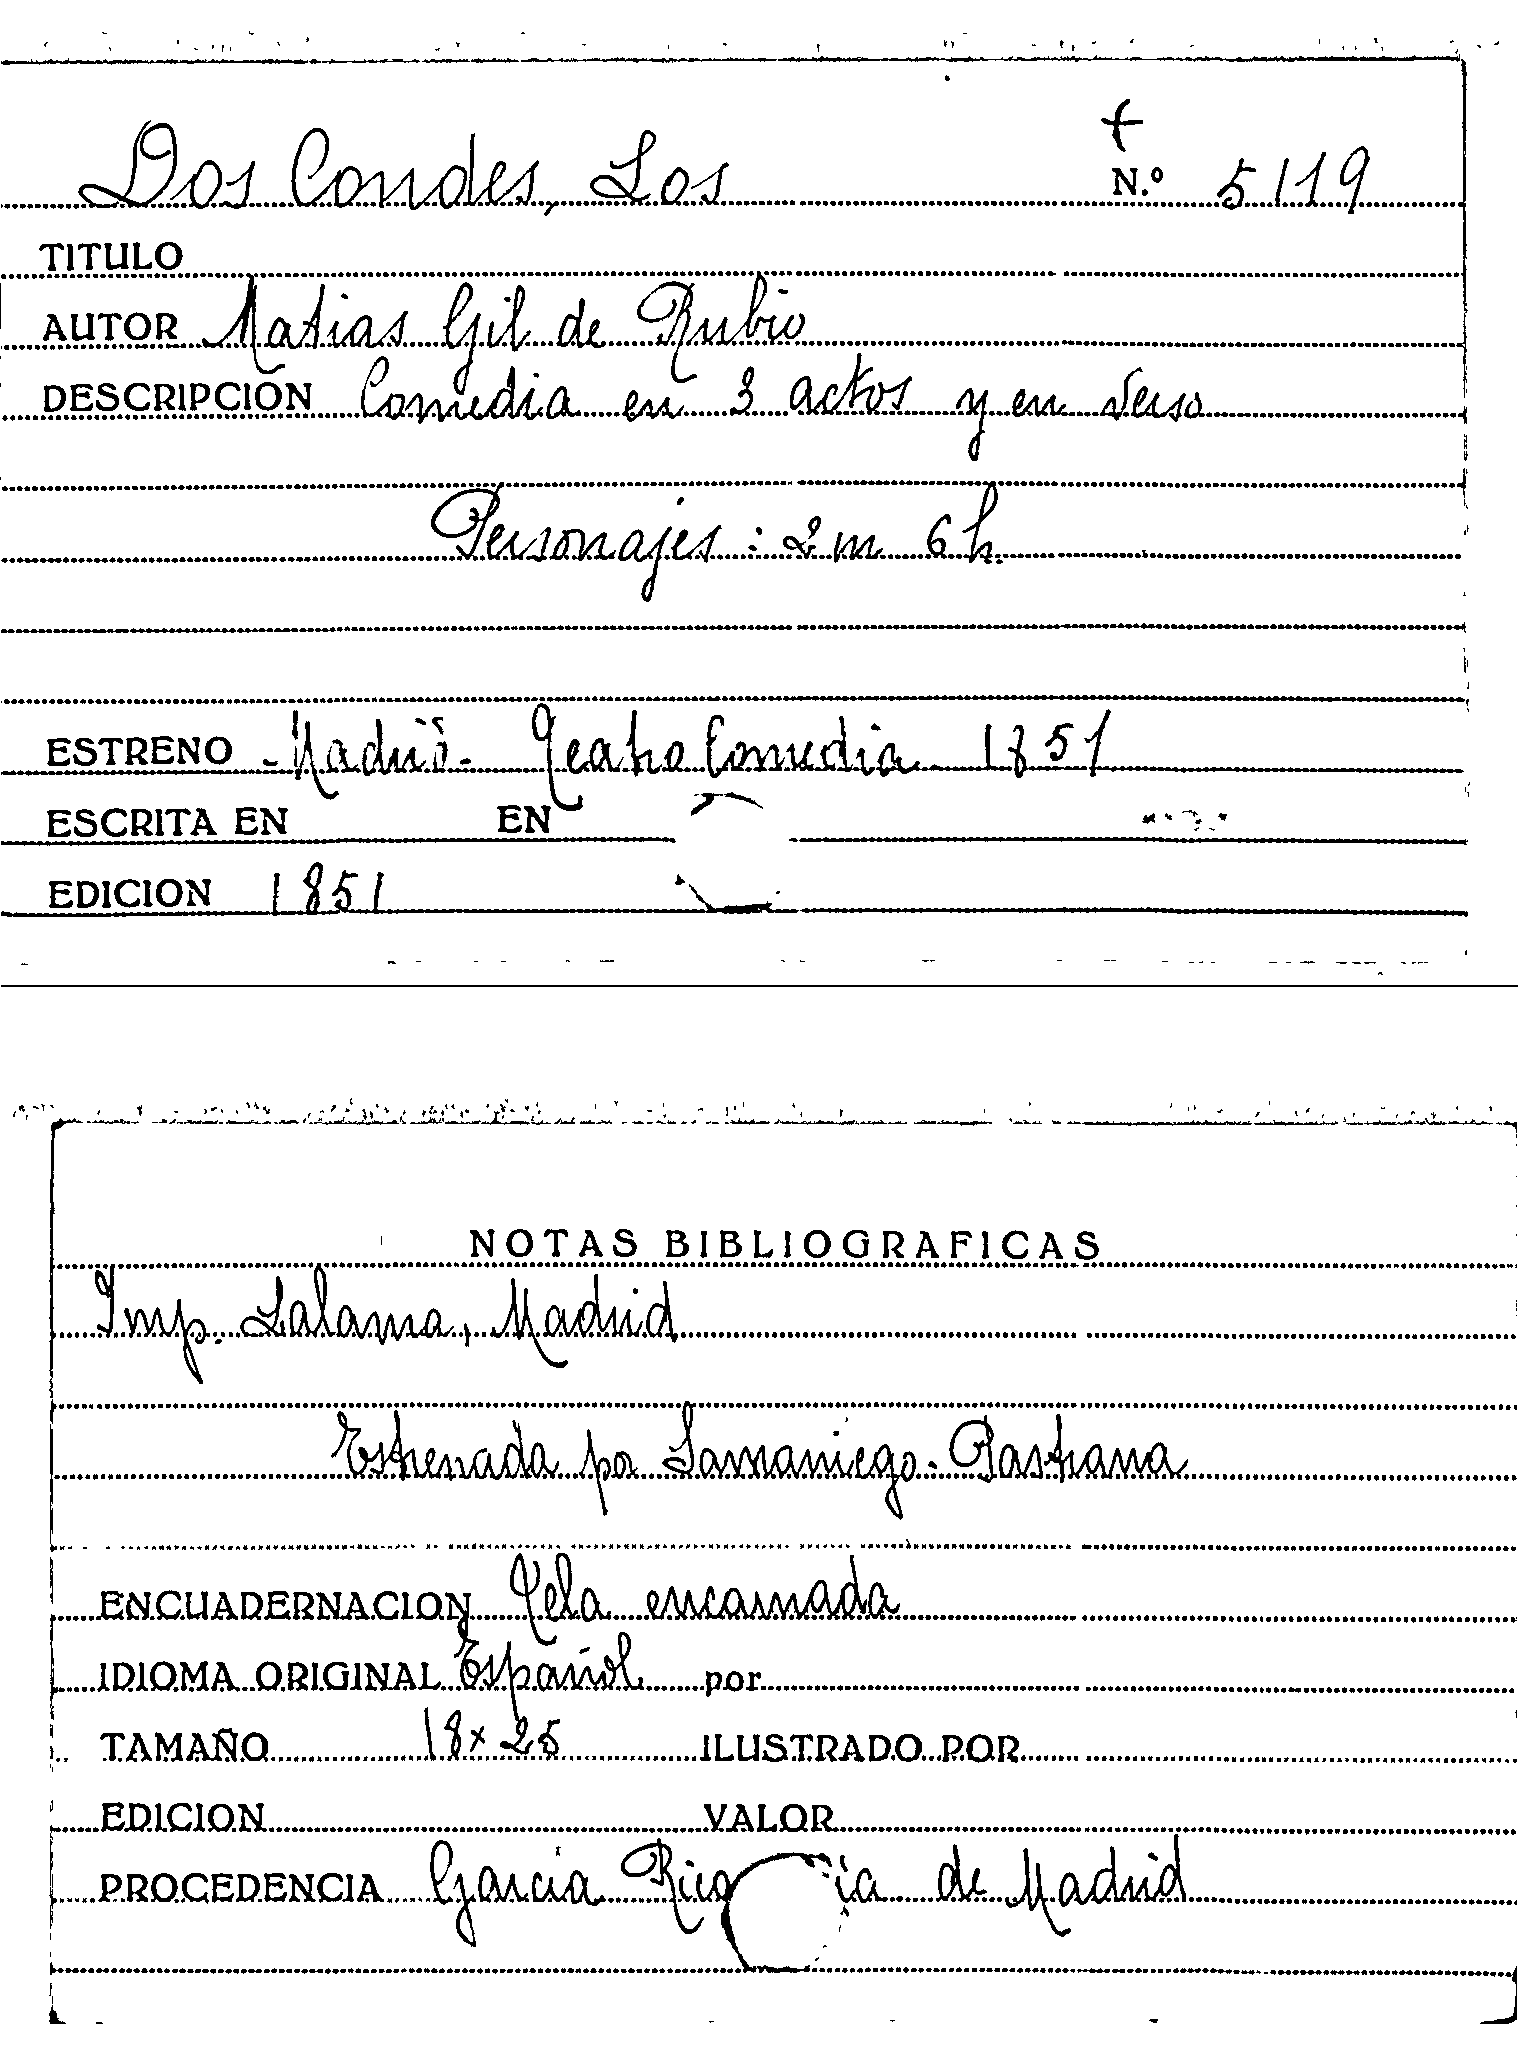 +
Dos Condes, Los N.º 5119
TITULO
AUTOR Matias Gil de Rubio
DESCRIPCION Comedia en 3 actos y en verso
Personajes: 2 m 6 h.
ESTRENO - Madrid - Teatro Comedia - 1851
ESCRITA EN EN
EDICION 1851
NOTAS BIBLIOGRAFICAS
Imp. Lalama, Madrid
Estrenada por Samaniego - Pastrana
ENCUADERNACION Tela encarnada
IDIOMA ORIGINAL Español por
TAMAÑO 18 x 25 ILUSTRADO POR
EDICION VALOR
PROCEDENCIA Garcia Rico de Madrid